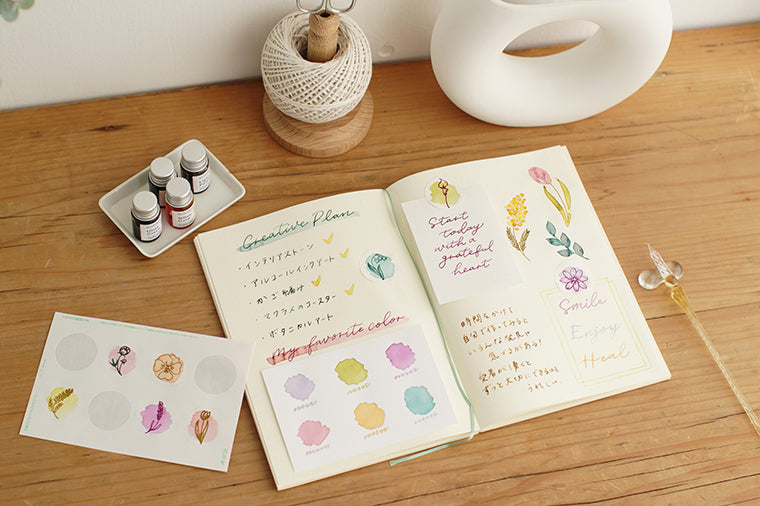 Creative Plan
・インテリアストーン
・アルコールインクアート
・かご編み
・マクラメのコースター
・ボタニカルアート
My favorite color
Start
today
with a
grateful
heart
時間をかけて
自分で作ってみると
いろんな発見や
気づきがある!
愛着が湧くと
ずっと大切にできるのも
うれしい。
Smile
Enjoy
Heal